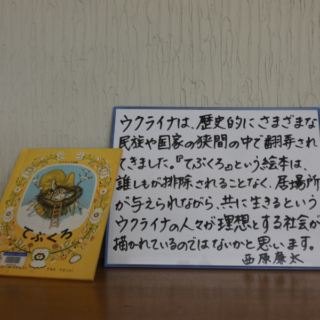 てぶくろ
ウクライナは、歴史的にさまざまな
民族や国家の狭間の中で翻弄され
てきました。『てぶくろ』という絵本は、
誰しもが排除されることなく、居場所
が与えられながら、共に生きるという
ウクライナの人々が理想とする社会が
描かれているのではないかと思います。
西原廉太